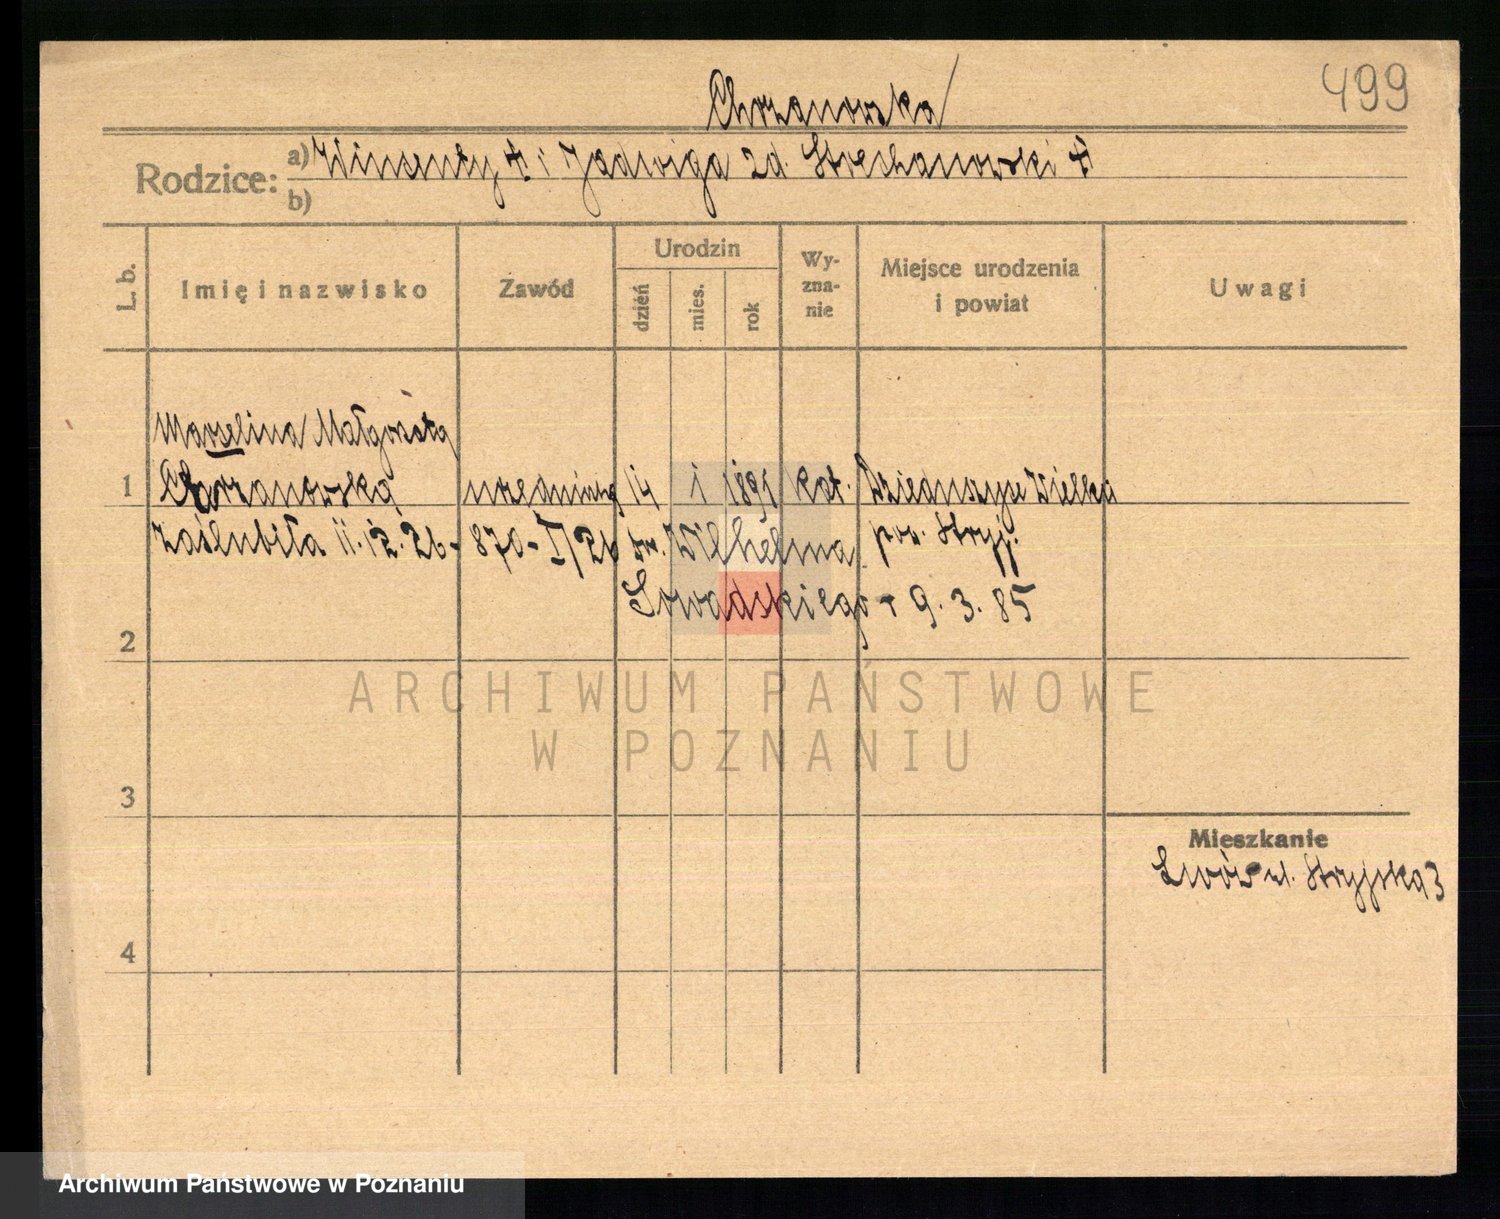 499
Chrzanowska
Rodzice: a) Winsenty † i Jadwiga 2d. Strechanowski †
b)
L. b. Imię i nazwisko Zawód Urodzin dzień mies. rok Wyznanie Miejsce urodzenia i powiat Uwagi
Marzelina Małgorzata
1 Chrzanowska 14 1 1891 kat. Dzieduszyce Wielka
zaślubiła 11.12.26. 870-I/26 Wilhelma pow. Stryj.
2 9. 3. 85
ARCHIWUM PAŃSTWOWE
W POZNANIU
3
Mieszkanie
Lwów ul. Stryjska 3
4
Archiwum Państwowe w Poznaniu